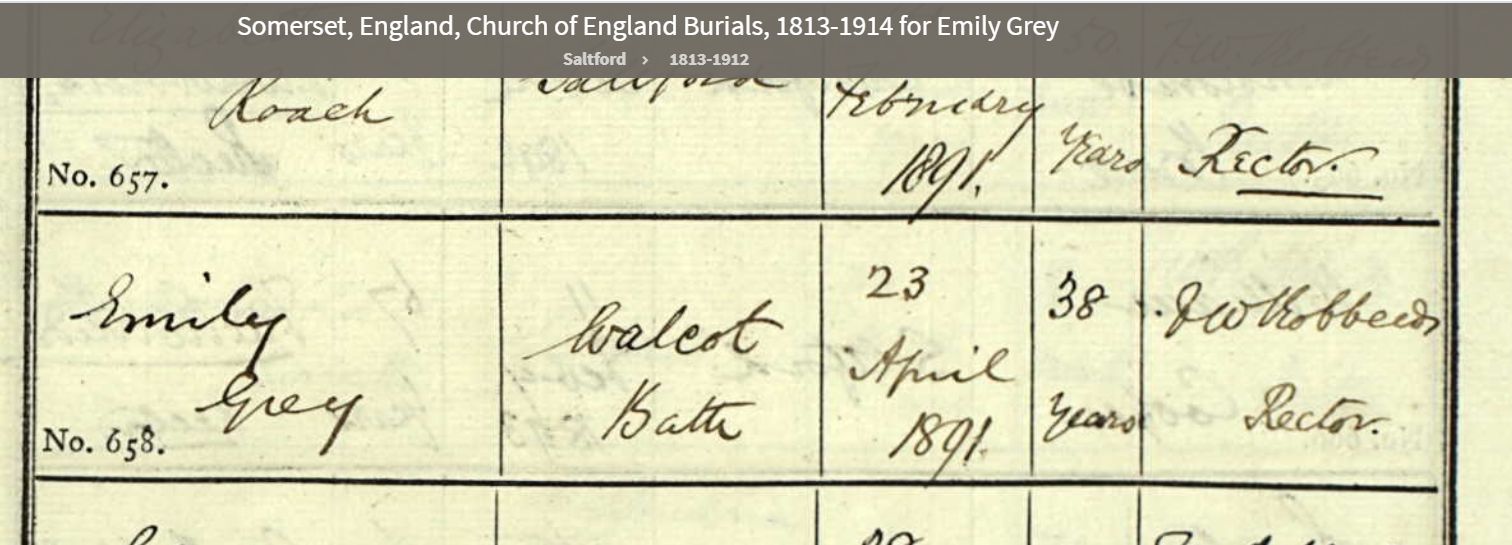 Somerset, England, Church of England Burials, 1813-1914 for Emily Grey
Saltford › 1813-1912
Roach
Saltford
February
1891.
Years
Rector.
No. 657.
Emily
Grey
Walcot
Bath
23
April
1891.
38
Years
Rector.
No. 658.